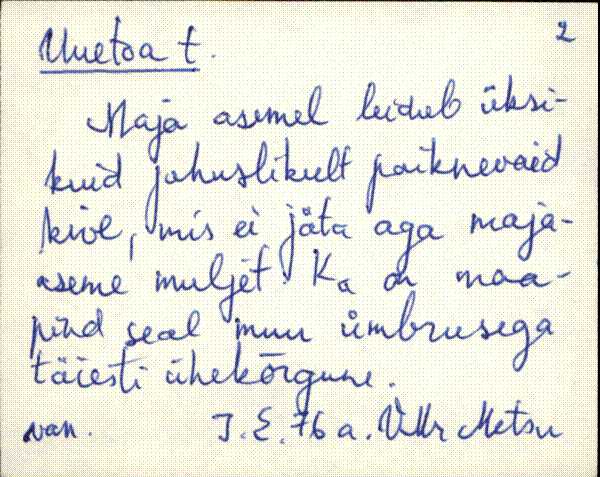 2
Uuetoa t.
Maja asemel leidub üksi-
kuid juhuslikult paiknevaid
kive, mis ei jäta aga maja-
aseme muljet. Ka on maa-
pind seal muu ümbrusega
täiesti ühekõrgune.
van. J. E. 76 a. Metsu